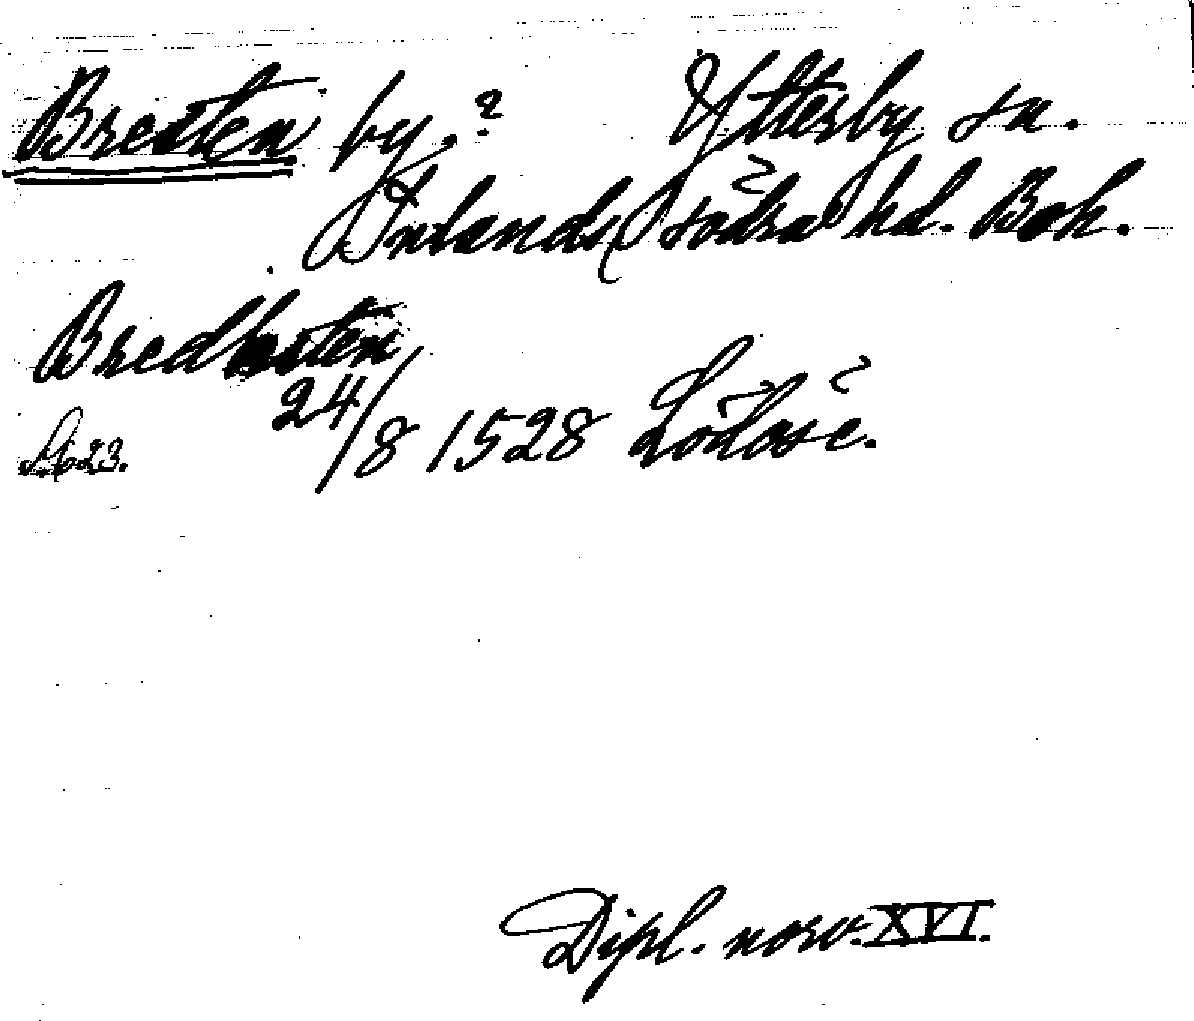 Bresten by.? Ytterby sn.
Inlands södra hd. Boh.
Bredhsten
24/8 1528 Lödöse.
23.
Dipl. norv. XVI.